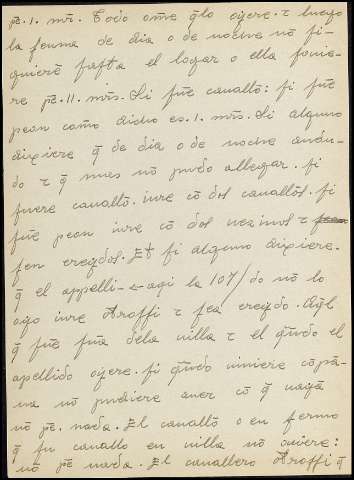 pē. I. mr̃. Todo ome q̃lo oyere. τ luego
la fenma de dia o de noche nõ si-
quiere fasta el logar o ella fonie-
re pē. II. mrs̃. Si fue cauallõ: si fue
peon como dicho es. I. mr̃s. Si alguno
dixiere q̃ de dia o de noche andu-
do τ q̃ mas nõ pudo allegar. si
fuere cauallõ. iure cõ dos cauallõs. si
fue peon iure cõ dos uezinos τ
sen creydos. Et si alguno dixiere.
q̃ el appelli- agi la 107/do nõ lo
oyo iure Otrossi τ sea creydo. Aq̃l
q̃ fue fũa dela uilla τ el q̃ndo el
apellido oyere. si q̃ndo uiniere cõpã-
na nõ pudiere auer cõ q̃ uaya
nõ pē. nada. El cauallõ o en fermo
q̃ su cauallo en uilla nõ ouiere:
nõ pē nada. El cauallero Otrossi q̃